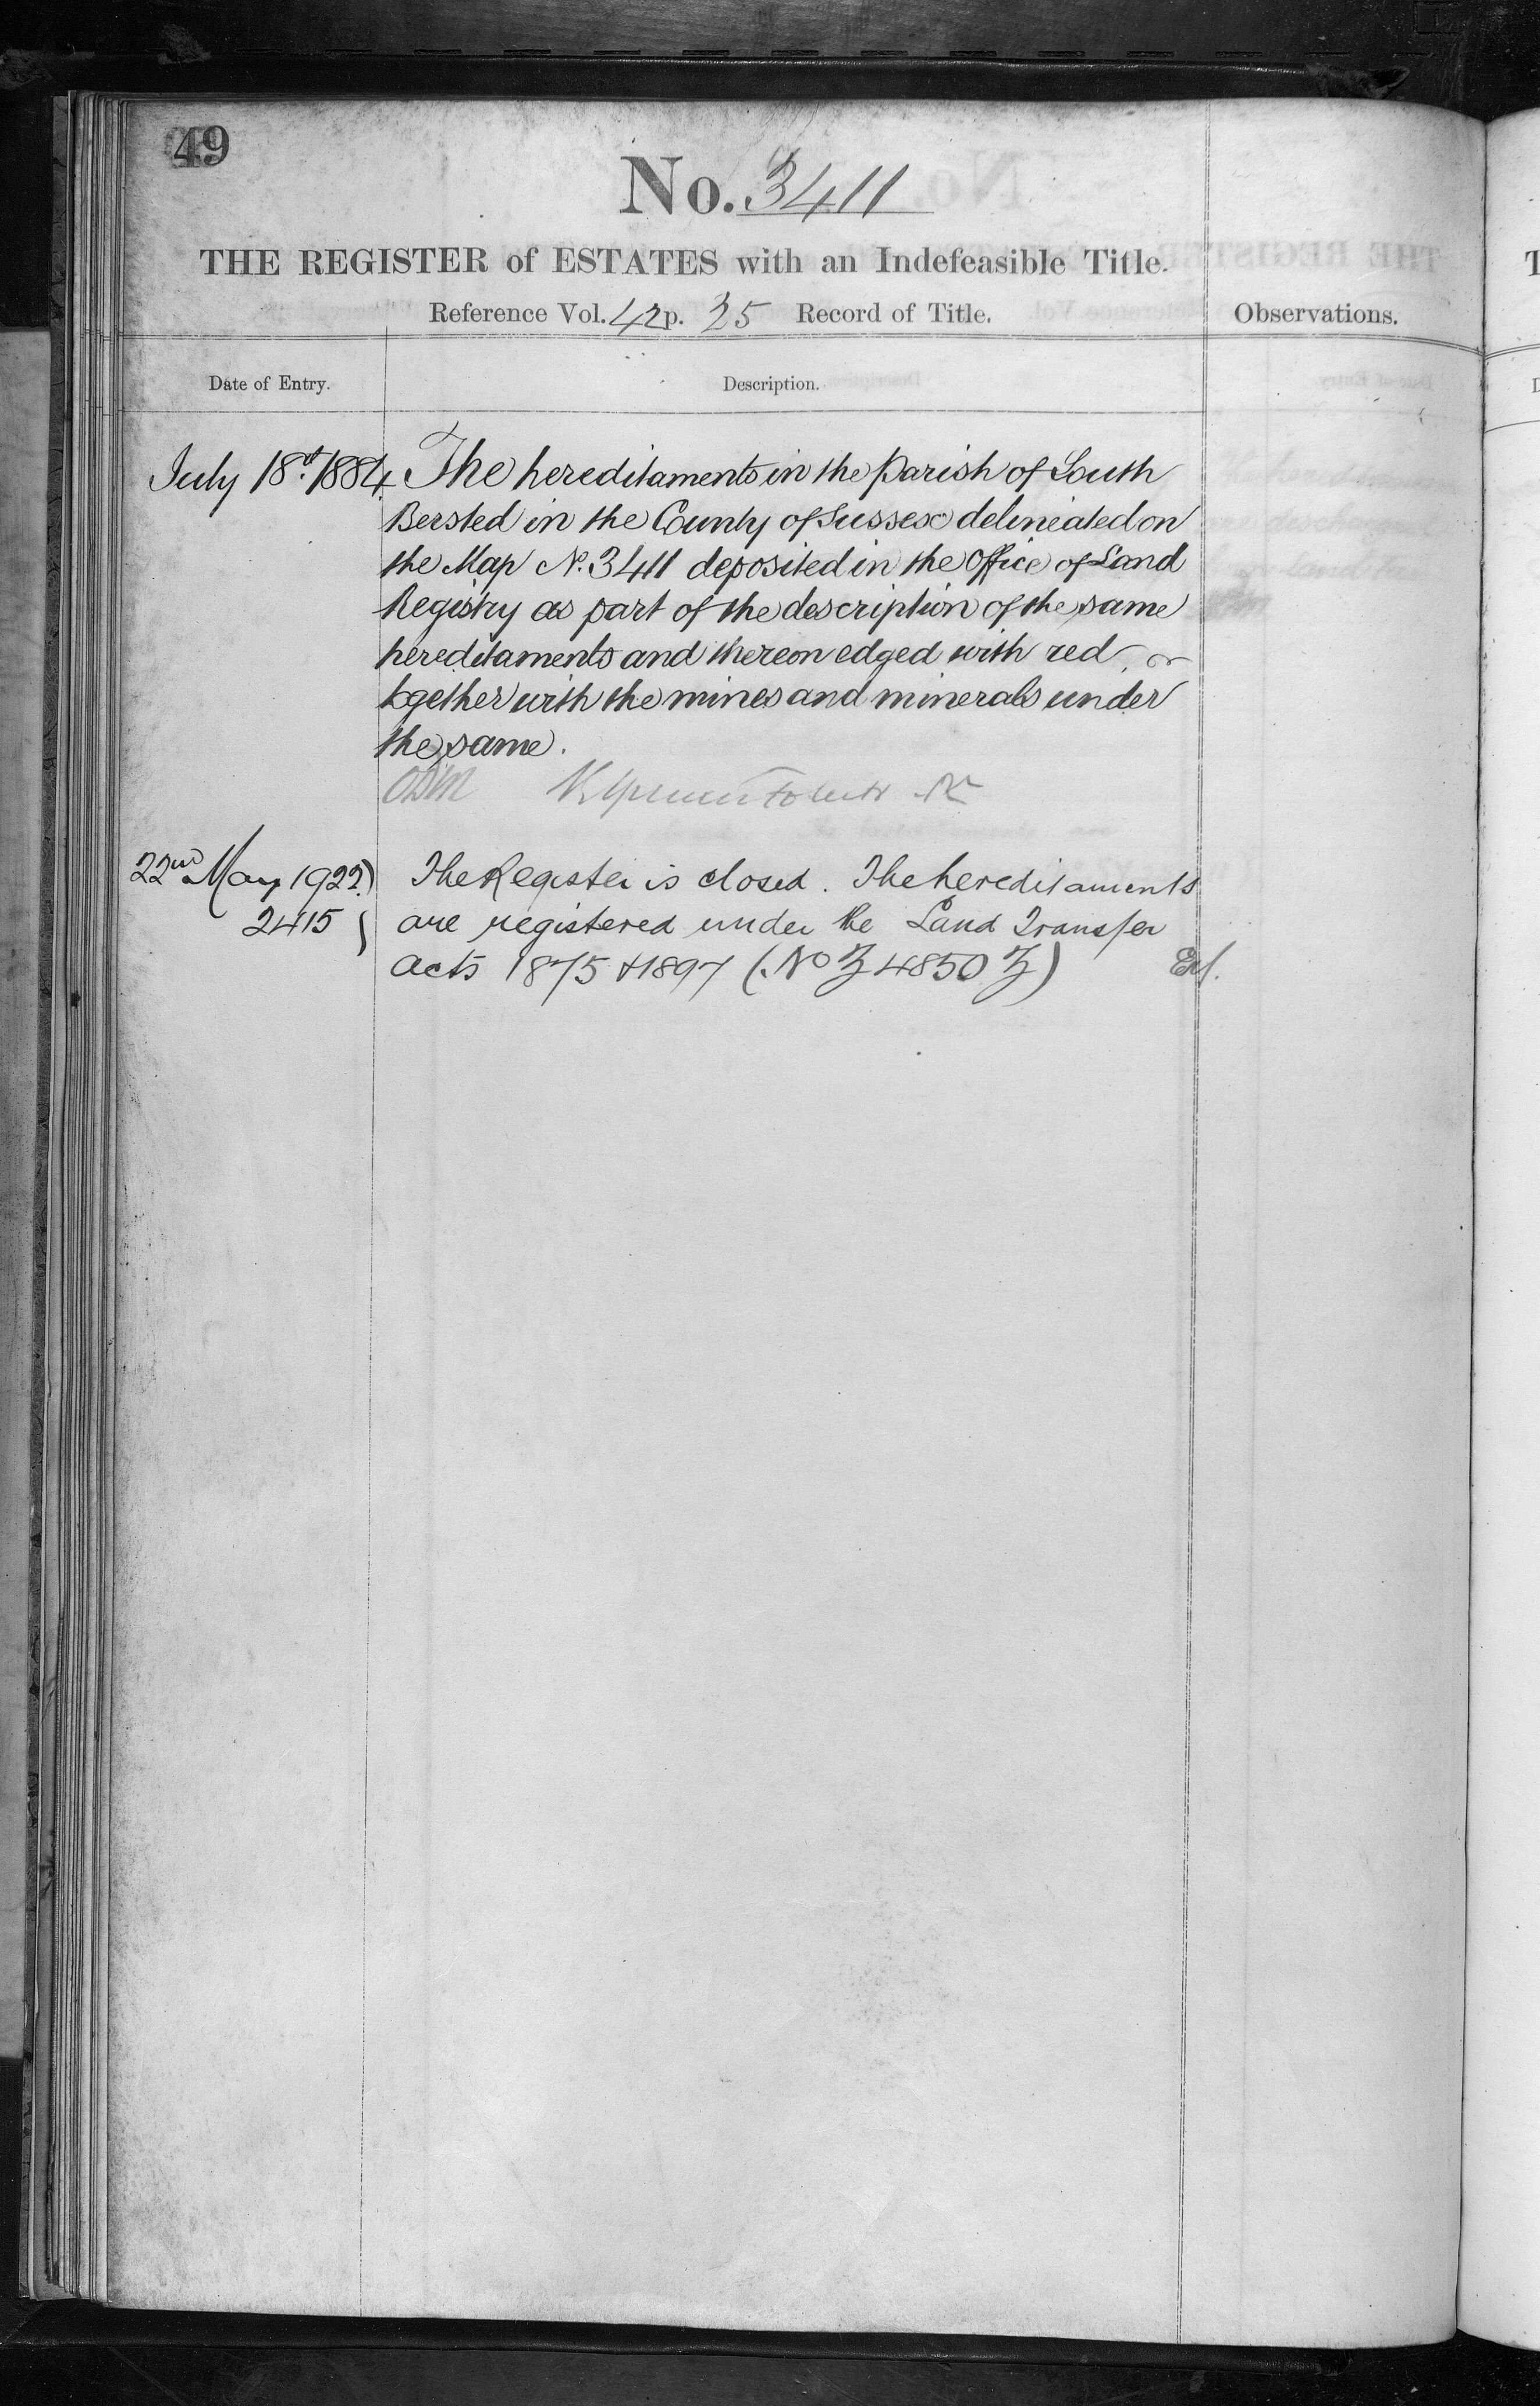 49
No. 3411
THE REGISTER of ESTATES with an Indefeasible Title.
Reference Vol. 42 p. 25 Record of Title.
Observations.
Date of Entry.
Description.
July 18th 1884
The hereditaments in the Parish of South
Bersted in the County of Sussex delineated on
the Map No. 3411 deposited in the Office of Land
Registry as part of the description of the same
hereditaments and thereon edged with red
together with the mines and minerals under
the same.
22nd May 1922
2415
The Register is closed. The hereditaments
are registered under the Land Transfer
Acts 1875 & 1897 (No Z 4850 Z)